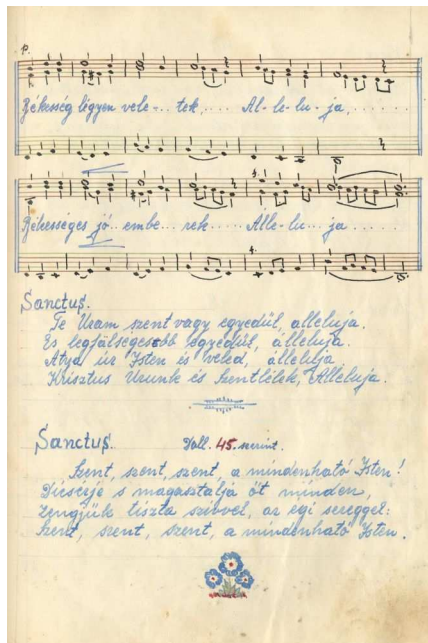 p.
Békesség légyen vele-.. tek,.... Al-le-lu-ja,......
Békességes jó.. embe.. rek... Alle-lu... ja.......
Sanctus.
Te Uram szent vagy egyedül, alleluja.
És legfölségesebb egyedül, álleluja.
Atya úr Isten és veled, állelulja
Krisztus Urunk és Szentlélek, Alleluja.
Sanctus. Holl. 45. szerint.
Szent, szent, szent, a mindenható Isten!
Dicsérje s magasztalja őt minden,
Zengjük tiszta szívvel, az égi sereggel:
Szent, szent, szent, a mindenható Isten.